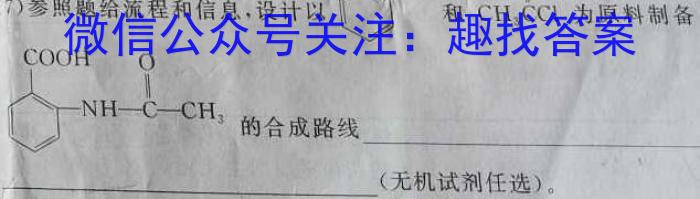 7)参照题给流程和信息,设计以 和 CH₃CCl 为原料制备
微信公众号关注：趣找答案
COOH
O
NH—C—CH₃ 的合成路线
(无机试剂任选)。